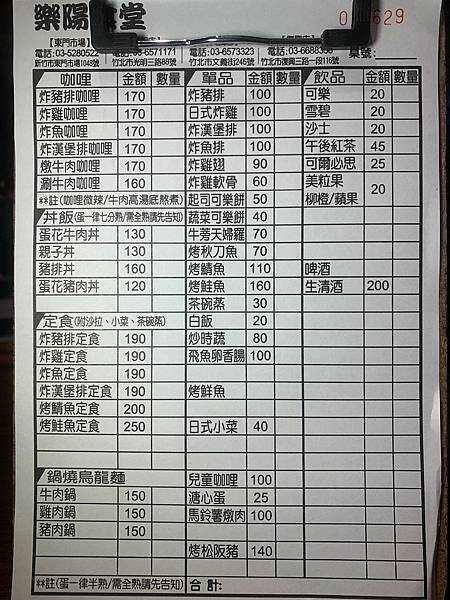 樂陽 堂
【東門市場】
電話:03-5280522 電話:03-6571171 電話:03-6573323 電話:03-6688356
新竹市東門市場1048號 竹北市光明三路86號 竹北市文義街245號 竹北市復興三路一段116號
桌號:
629
咖哩 金額 數量 單品 金額 數量 飲品 金額 數量
炸豬排咖哩 170 炸豬排 100 可樂 20
炸雞咖哩 170 日式炸雞 100 雪碧 20
炸魚咖哩 170 炸漢堡排 100 沙士 20
炸漢堡排咖哩 170 炸魚排 100 午後紅茶 45
燉牛肉咖哩 170 炸雞翅 90 可爾必思 25
涮牛肉咖哩 160 炸雞軟骨 60 美粒果 20
**註(咖哩微辣/牛肉高湯底熬煮) 起司可樂餅 50 柳橙/蘋果
丼飯(蛋一律七分熟/需全熟請先告知) 蔬菜可樂餅 40
蛋花牛肉丼 130 牛蒡天婦羅 70
親子丼 130 烤秋刀魚 70
豬排丼 160 烤鯖魚 110 啤酒
蛋花豬肉丼 120 烤鮭魚 160 生清酒 200
茶碗蒸 30
定食(附沙拉、小菜、茶碗蒸) 白飯 20
炸豬排定食 190 炒時蔬 80
炸雞定食 190 飛魚卵香腸 100
炸魚定食 190
炸漢堡排定食 190 烤鮮魚
烤鯖魚定食 200
烤鮭魚定食 250 日式小菜 40
鍋燒烏龍麵 兒童咖哩 100
牛肉鍋 150 溏心蛋 25
雞肉鍋 150 馬鈴薯燉肉 100
豬肉鍋 150
烤松阪豬 140
**註(蛋一律半熟/需全熟請先告知) 合計: